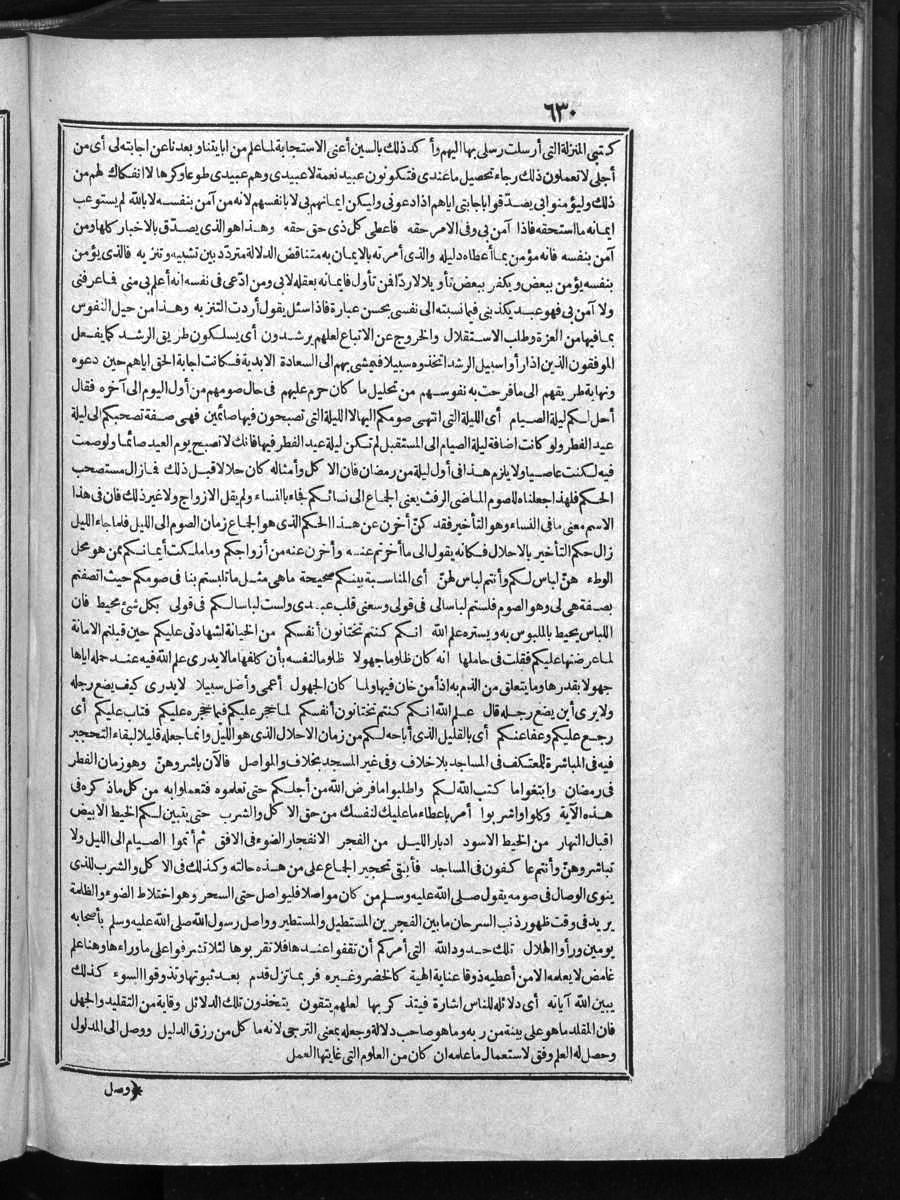 ٦٣٠
كتبي المنزلة التي أرسلت رسلي بها اليهم وأكد ذلك بالسين أعني الاستجابة لما علم من ابايتنا وبعدنا عن اجابته لي أي من
أجلي لا تعملون ذلك رجاء تحصيل ما عندي فتكونون عبيد نعمة لا عبيدي وهم عبيدي طوعا وكرها لا انفكاك لهم من
ذلك وليؤمنوا بي يصدّقوا باجابتي اياهم اذا دعوني وليكن ايمانهم بي لا بأنفسهم لانه من آمن بنفسه لا بالله لم يستوعب
ايمانه ما استحقه فاذا آمن بي وفى الامر حقه فاعطى كل ذي حق حقه وهذا هو الذي يصدّق بالاخبار كلها ومن
آمن بنفسه فانه مؤمن بما أعطاه دليله والذي أمرته بالايمان به متناقض الدلالة متردّد بين تشبيه وتنزيه فالذي يؤمن
بنفسه يؤمن ببعض ويكفر ببعض تأويلا لا ردّا فمن تأول فايمانه بعقله لا بي ومن ادّعى في نفسه انه أعلم بي مني فما عرفني
ولا آمن بي فهو عبد يكذبني فيما نسبته الى نفسي بحسن عبارة فاذا سئل يقول أردت التنزيه وهذا من حيل النفوس
بما فيها من العزة وطلب الاستقلال والخروج عن الاتباع لعلهم يرشدون أي يسلكون طريق الرشد كما يفعل
الموفقون الذين اذا رأوا سبيل الرشد اتخذوه سبيلا فيمشي بهم الى السعادة الابدية فكانت اجابة الحق اياهم حين دعوه
ونهاية طريقهم الى ما فرحت به نفوسهم من تحليل ما كان حرم عليهم في حال صومهم من أول اليوم الى آخره فقال
أحل لكم ليلة الصيام أي الليلة التي انتهى صومكم اليها لا الليلة التي تصبحون فيها صائمين فهي صفة تصحبكم الى ليلة
عيد الفطر ولو كانت اضافة ليلة الصيام الى المستقبل لم تكن ليلة عيد الفطر فيها فانك لا تصبح يوم العيد صائما ولو صمت
فيه لكنت عاصيا ولا يلزم هذا في أول ليلة من رمضان فان الاكل وأمثاله كان حلالا قبل ذلك فما زال مستصحب
الحكم فلهذا جعلناه للصوم الماضي الرفث يعني الجماع الى نسائكم فجاء بالنساء ولم يقل الازواج ولا غير ذلك فان في هذا
الاسم معنى ما في النساء وهو التأخير فقد كنّ أخرن عن هذا الحكم الذي هو الجماع زمان الصوم الى الليل فلما جاء الليل
زال حكم التأخير بالاحلال فكانه يقول الى ما أخرتم عنه وأخرن عنه من أزواجكم وما ملكت أيمانكم ممن هو محل
الوطء هنّ لباس لكم وأنتم لباس لهنّ أي المناسبة بينكم صحيحة ما هي مثل ما تلبستم بنا في صومكم حيث اتصفتم
بصفة هي لي وهو الصوم فلستم لباسالي في قولي وسعني قلب عبدي ولست لباسا لكم في قولي بكل شئ محيط فان
اللباس يحيط بالملبوس به ويستره علم الله انكم كنتم تختانون أنفسكم من الخيانة لشهادتي عليكم حين قبلتم الامانة
لما عرضتها عليكم فقلت في حاملها انه كان ظلوما جهولا ظلوما لنفسه بأن كلفها ما لا يدري علم الله فيه عند حمله اياها
جهولا بقدرها وما يتعلق من الذم به اذ أمن خان فيها ولما كان الجهول أعمى وأضل سبيلا لا يدري كيف يضع رجله
ولا يرى أين يضع رجله قال علم الله انكم كنتم تختانون أنفسكم لما حجر عليكم فيما حجره عليكم فتاب عليكم أي
رجع عليكم وعفا عنكم أي بالقليل الذي أباحه لكم من زمان الاحلال الذي هو الليل وانما جعله قليلا لبقاء التحجير
فيه في المباشرة للمعتكف في المساجد بلا خلاف وفي غير المسجد بخلاف والمواصل فالآن باشروهنّ وهو زمان الفطر
في رمضان وابتغوا ما كتب الله لكم واطلبوا ما فرض الله من أجلكم حتى تعلموه فتعملوا به من كل ما ذكره في
هذه الآية وكلوا واشربوا أمر باعطاء ما عليك لنفسك من حق الاكل والشرب حتى يتبين لكم الخيط الابيض
اقبال النهار من الخيط الاسود ادبار الليل من الفجر الانفجار الضوء في الافق ثم أتموا الصيام الى الليل ولا
تباشروهنّ وأنتم عاكفون في المساجد فأبقى تحجير الجماع على من هذه حالته وكذلك في الاكل والشرب للذي
ينوي الوصال في صومه يقول صلى الله عليه وسلم من كان مواصلا فليواصل حتى السحر وهو اختلاط الضوء والظلمة
يريد في وقت ظهور ذنب السرحان ما بين الفجرين المستطيل والمستطير وواصل رسول الله صلى الله عليه وسلم بأصحابه
يومين ورأوا الهلال تلك حدود الله التي أمركم أن تقفوا عندها فلا تقربوها لئلا تشرفوا على ما وراءها وهنا علم
غامض لا يعلمه الا من أعطيه ذوقا عناية الهية كالخضر وغيره فربما تزل قدم بعد ثبوتها وتذوقوا السوء كذلك
يبين الله آياته أي دلائله للناس اشارة فيتذكر بها لعلهم يتقون يتخذون تلك الدلائل وقاية من التقليد والجهل
فان المقلد ما هو على بينة من ربه وما هو صاحب دلالة وجعله بمعنى الترجي لانه ما كل من رزق الدليل ووصل الى المدلول
وحصل له العلم وفق لاستعمال ما علمه ان كان من العلوم التي غايتها العمل
﴿وصل